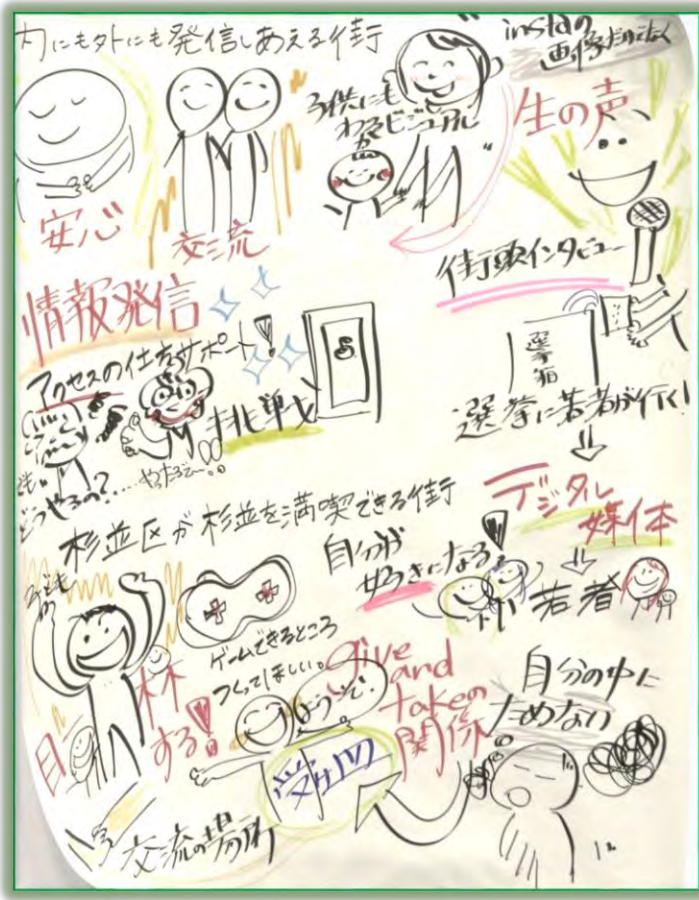 内にも外にも発信しあえる街
instaの
画像だけでなく
子供にも
わかる
ビジュアル
生の声
安心
交流
街頭インタビュー
情報発信
アクセスの仕方サポート!
選挙
選挙に若者が行く!
挑戦
でも…
どうやるの?……
やったぞ〜!!
デジタル
媒体
杉並区が杉並を満喫できる街
自分が
好きになる!
若者
子ども
ゲームできるところ
つくってほしい。
give
and
takeの
関係
自分の中に
ためない
する!
ようこそ!
受け入れ
交流の場所